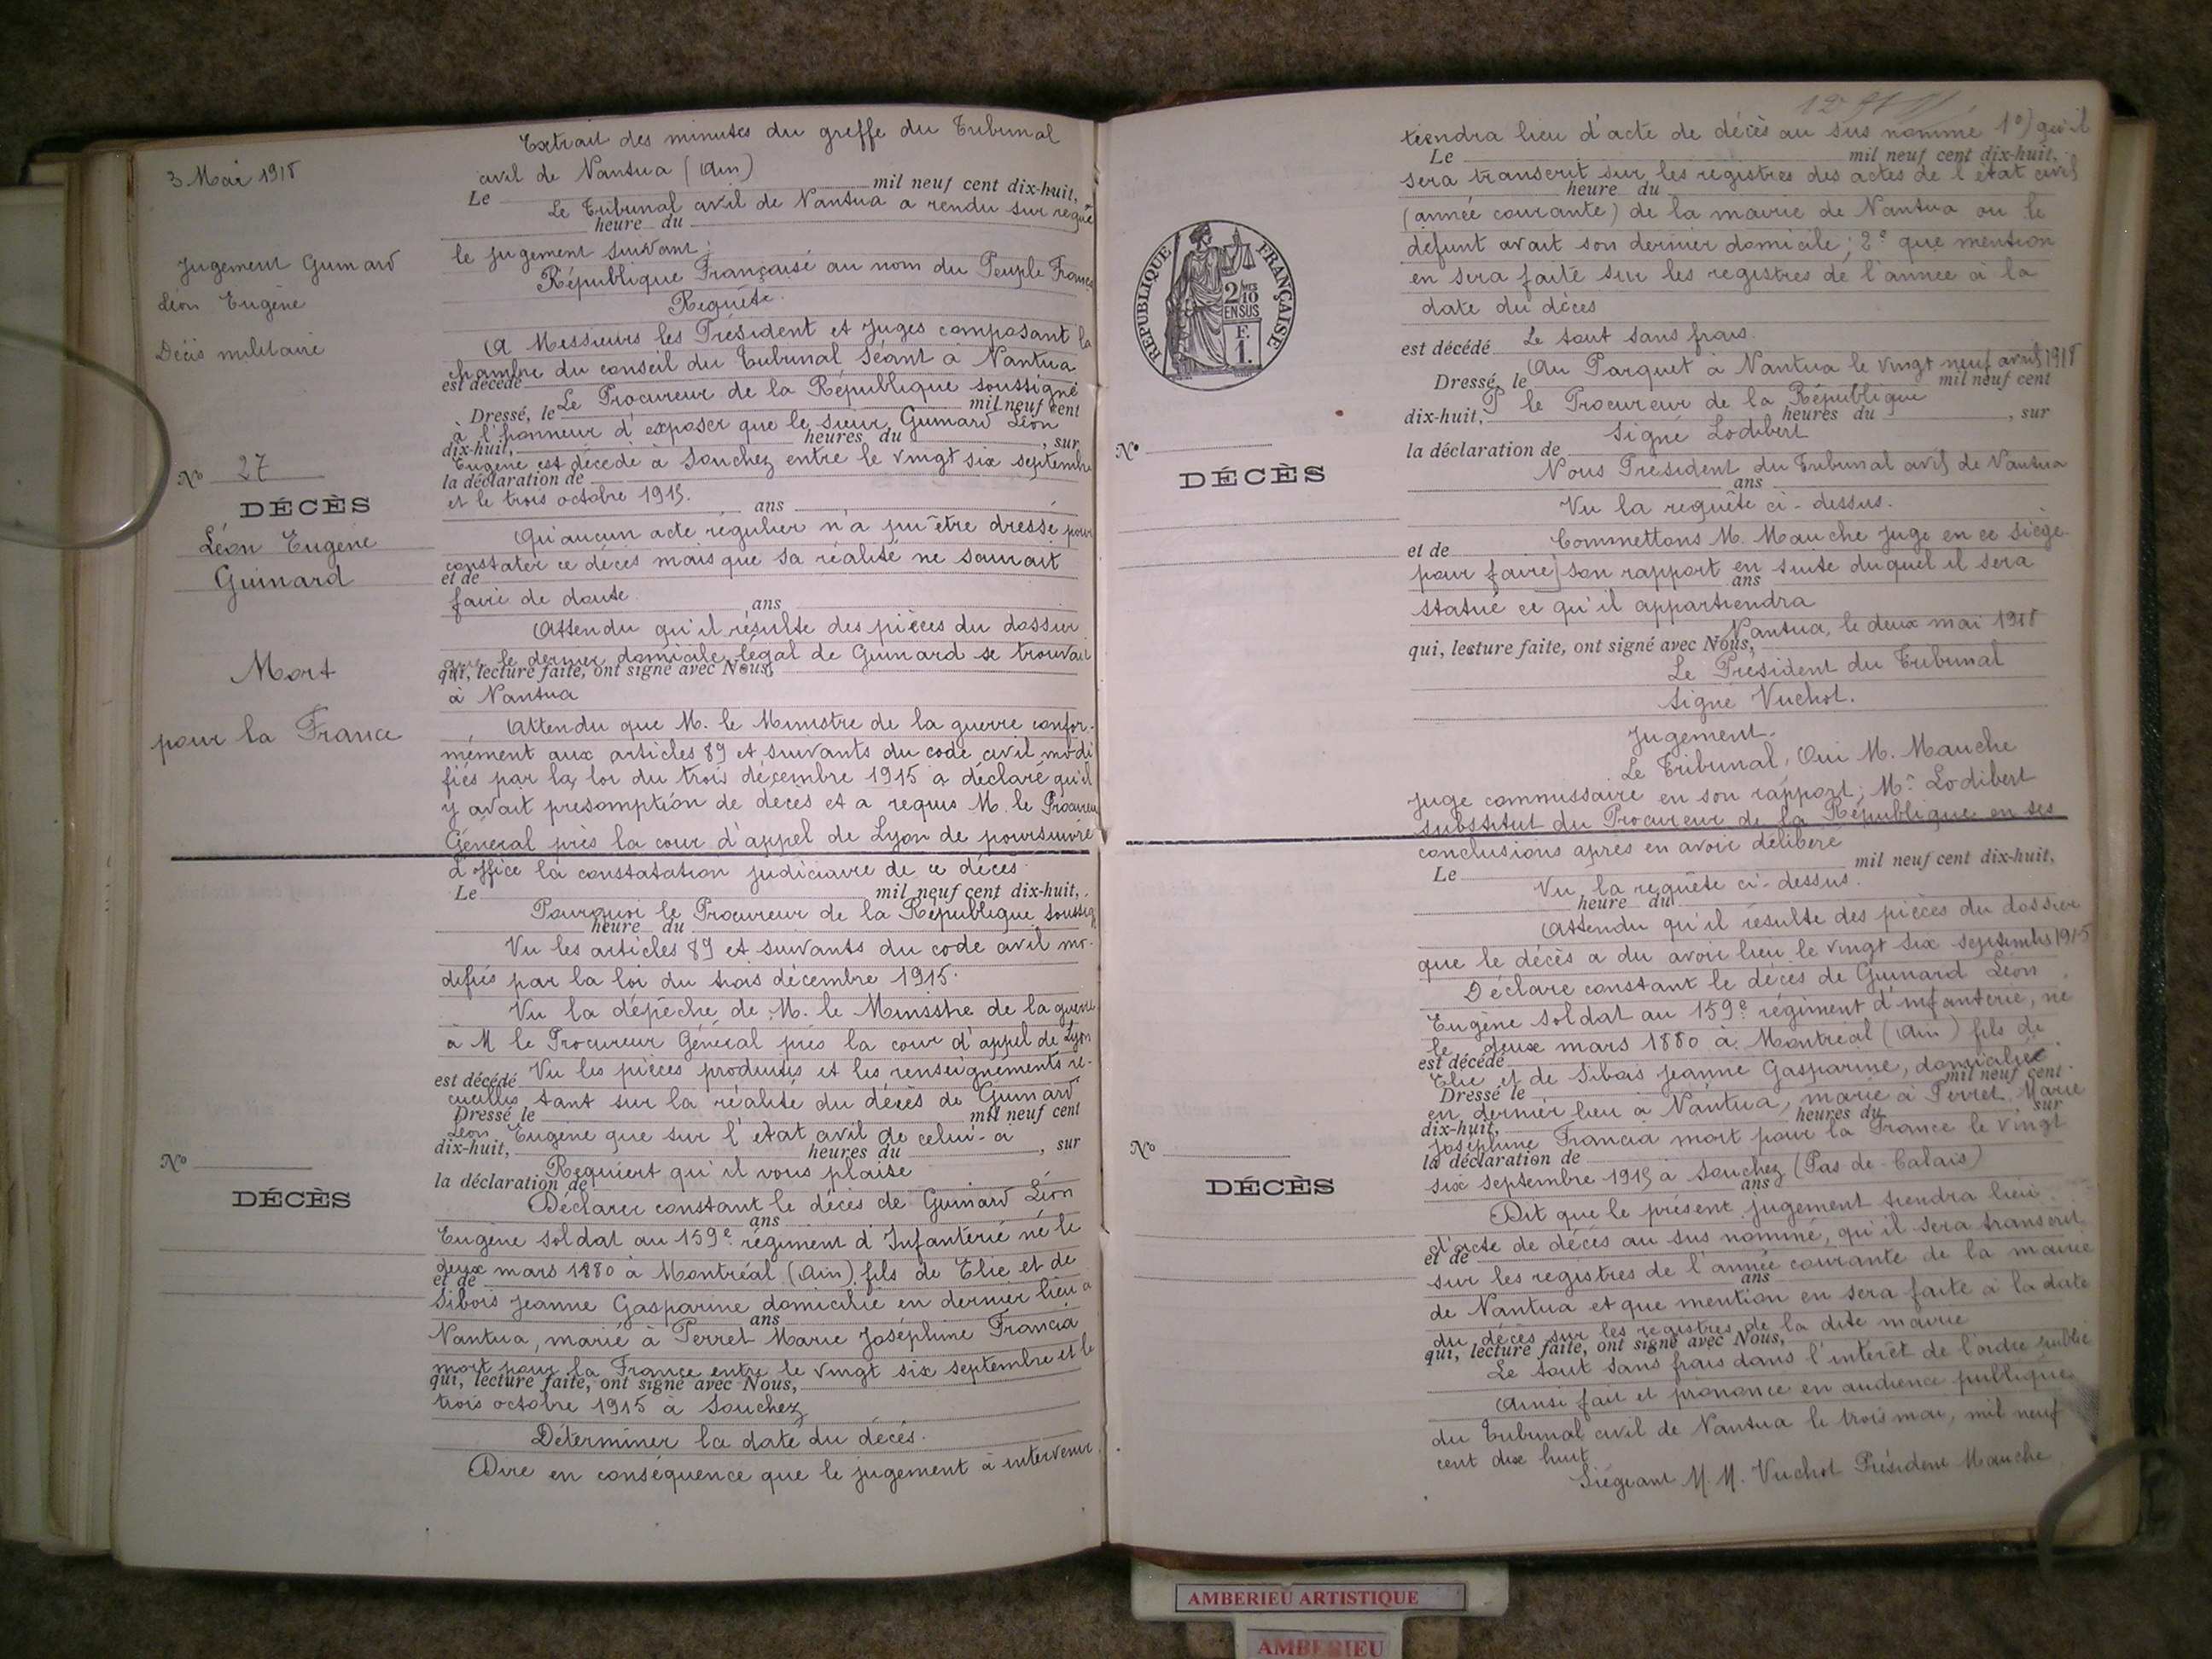 3 Mai 1918
Jugement Guinard
Léon Eugène
Décès militaire
Nº 27
DÉCÈS
Léon Eugène
Guinard
Mort
pour la France
Nº
DÉCÈS
Extrait des minutes du greffe du Tribunal
civil de Nantua (Ain)
Le mil neuf cent dix-huit,
Le Tribunal civil de Nantua a rendu sur requê
heure du
le jugement suivant :
République Française au nom du Peuple França
Requête.
A Messieurs les Président et Juges composant la
chambre du conseil du Tribunal séant à Nantua
est décédé
Le Procureur de la République soussigné
Dressé, le mil neuf cent
à l'honneur d'exposer que le sieur Guinard Léon
dix-huit, heures du , sur
Eugène est décédé à Souchez entre le vingt six septembre
la déclaration de
et le trois octobre 1915.
ans
Qu'aucun acte régulier n'a pu être dressé pour
constater ce décès mais que sa réalité ne saurait
et de
faire de doute.
ans
Attendu qu'il résulte des pièces du dossier
que le dernier domicile légal de Guinard se trouvait
qui, lecture faite, ont signé avec Nous,
à Nantua
Attendu que M. le Ministre de la guerre confor-
mément aux articles 89 et suivants du code civil modi
fiés par la loi du trois décembre 1915 a déclaré qu'il
y avait présomption de décès et a requis M. le Procureur
Général près la cour d'appel de Lyon de poursuivre
d'office la constatation judiciaire de ce décès
Le mil neuf cent dix-huit,
Pourquoi le Procureur de la République soussig
heure du
Vu les articles 89 et suivants du code civil mo-
difiés par la loi du trois décembre 1915.
Vu la dépêche de M. le Ministre de la guerre
à M le Procureur Général près la cour d'appel de Lyon
Vu les pièces produites et les renseignements re-
est décédé
cueillis tant sur la réalité du décès de Guinard
Dressé le mil neuf cent
Léon Eugène que sur l'état civil de celui-ci
dix-huit, heures du , sur
Requiert qu'il vous plaise
la déclaration de
Déclarer constant le décès de Guinard Léon
ans
Eugène soldat au 159e régiment d'Infanterie né le
deux mars 1880 à Montréal (Ain) fils de Elie et de
et de
Sibois Jeanne Gasparine domicilié en dernier lieu à
ans
Nantua, marié à Perret Marie Joséphine Francia
mort pour la France entre le vingt six septembre et le
qui, lecture faite, ont signé avec Nous,
trois octobre 1915 à Souchez
Déterminer la date du décès.
Dire en conséquence que le jugement à intervenir
REPUBLIQUE FRANÇAISE
2/10
EN SUS
F.
1.
Nº
DÉCÈS
Nº
DÉCÈS
tiendra lieu d'acte de décès au sus nommé 1º) qu'il
Le mil neuf cent dix-huit,
sera transcrit sur les registres des actes de l'état civil
heure du
(année courante) de la mairie de Nantua ou le
défunt avait son dernier domicile ; 2º que mention
en sera faite sur les registres de l'année à la
date du décès
Le tout sans frais.
est décédé
Au Parquet à Nantua le vingt neuf avril 1918
Dressé, le mil neuf cent
P le Procureur de la République
dix-huit, heures du , sur
Signé Lodibert
la déclaration de
Nous Président du Tribunal civil de Nantua
ans
Vu la requête ci-dessus.
Commettons M. Mauche juge en ce siège
et de
pour faire son rapport en suite duquel il sera
ans
statué ce qu'il appartiendra
Nantua, le deux mai 1918
qui, lecture faite, ont signé avec Nous,
Le Président du Tribunal
Signé Vuchot.
Jugement.
Le Tribunal, Oui M. Mauche
juge commissaire en son rapport ; Mr Lodibert
substitut du Procureur de la République en ses
conclusions après en avoir délibéré
Le mil neuf cent dix-huit,
Vu la requête ci-dessus.
heure du
Attendu qu'il résulte des pièces du dossier
que le décès a du avoir lieu le vingt six septembre 1915
Déclare constant le décès de Guinard Léon
Eugène soldat au 159e régiment d'infanterie, né
le deux mars 1880 à Montréal (Ain) fils de
est décédé
Elie et de Sibois Jeanne Gasparine, domicilié
Dressé le mil neuf cent
en dernier lieu à Nantua, marié à Perret Marie
dix-huit, heures du , sur
Joséphine Francia mort pour la France le vingt
la déclaration de
six septembre 1915 à Souchez (Pas de-Calais)
ans
Dit que le présent jugement tiendra lieu
d'acte de décès au sus nommé, qu'il sera transcrit
et de
sur les registres de l'année courante de la mairie
ans
de Nantua et que mention en sera faite à la date
du décès sur les registres de la dite mairie
qui, lecture faite, ont signé avec Nous,
Le tout sans frais dans l'intérêt de l'ordre public
Ainsi fait et prononcé en audience publique
du Tribunal civil de Nantua le trois mai, mil neuf
cent dix huit
Siégeant M.M. Vuchot Président Mauche
AMBERIEU ARTISTIQUE
AMBERIEU